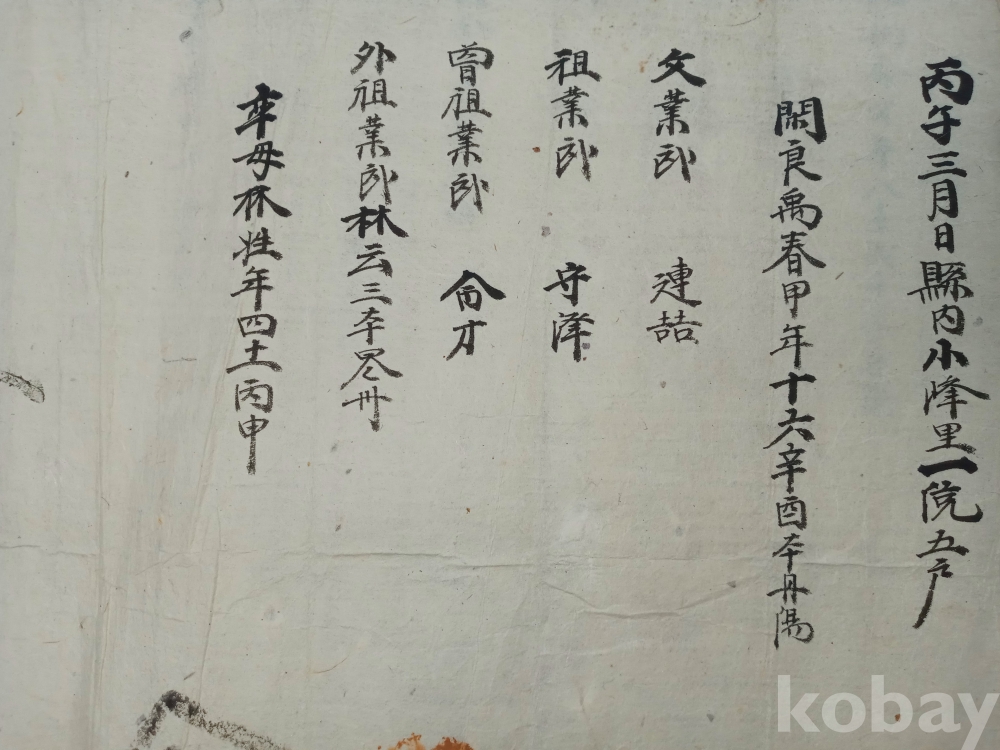 丙午三月日縣內小峰里一院五戶
閑良禹春甲年十六辛酉本丹陽
父業武 連喆
祖業武 守澤
曾祖業武 命才
外祖業武林云三本
率母林姓年四十一丙申
kobay